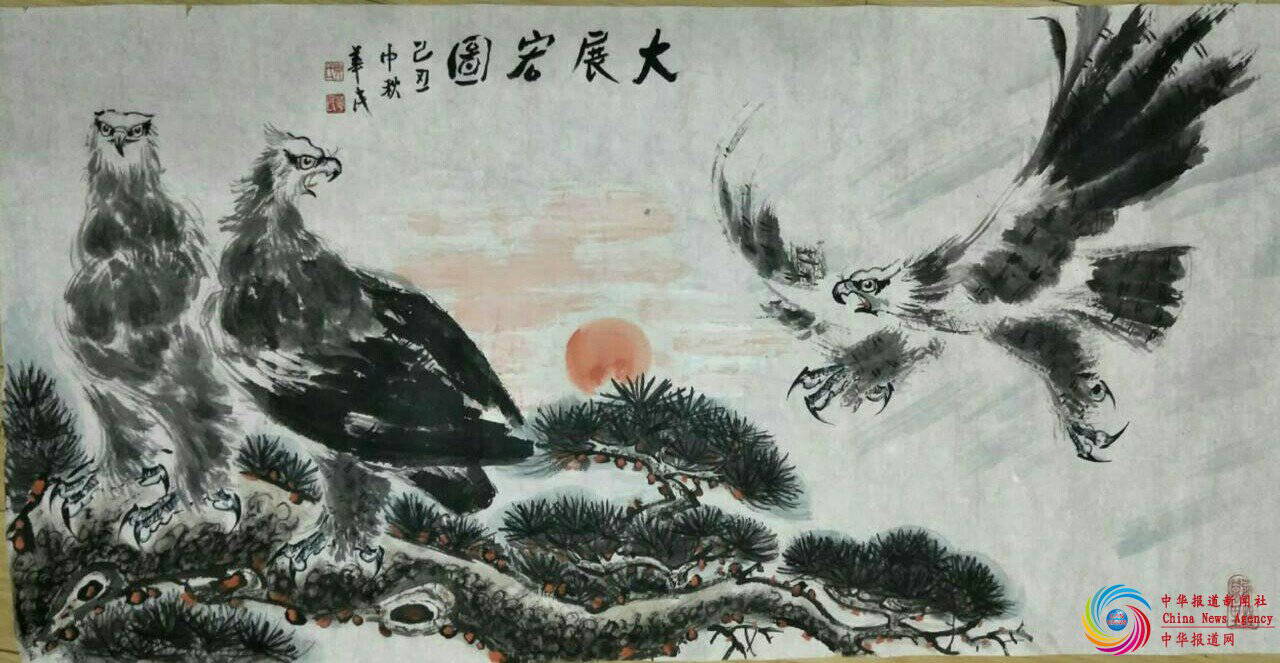 大展宏圖
己丑
中秋
華
中华报道新闻社
China News Agency
中华报道网